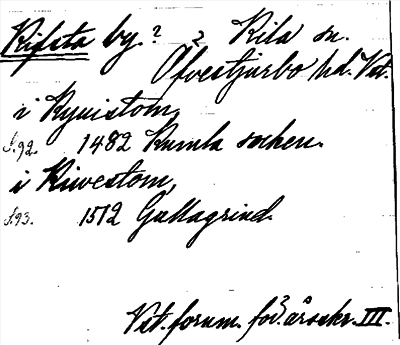 Rifsta by.? ? Kila sn.
Öfvertjurbo hd. Vst.
i Ryuistom,
S.92. 1482 Kumla socken.
i Riwestom,
S.93. 1512 Gullagrind.
Vst. fornm. för. årsskr. III.